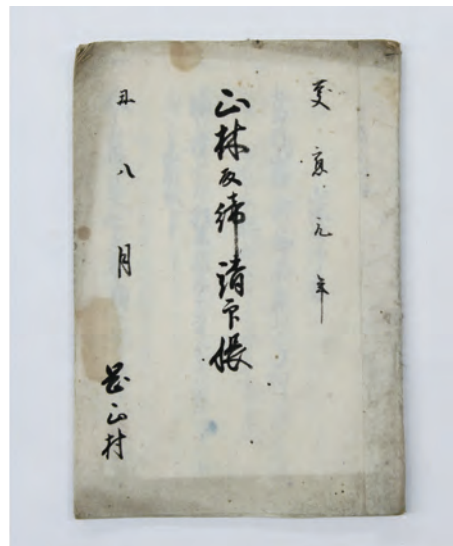 慶應元年
山林取締請印帳
丑八月
山村